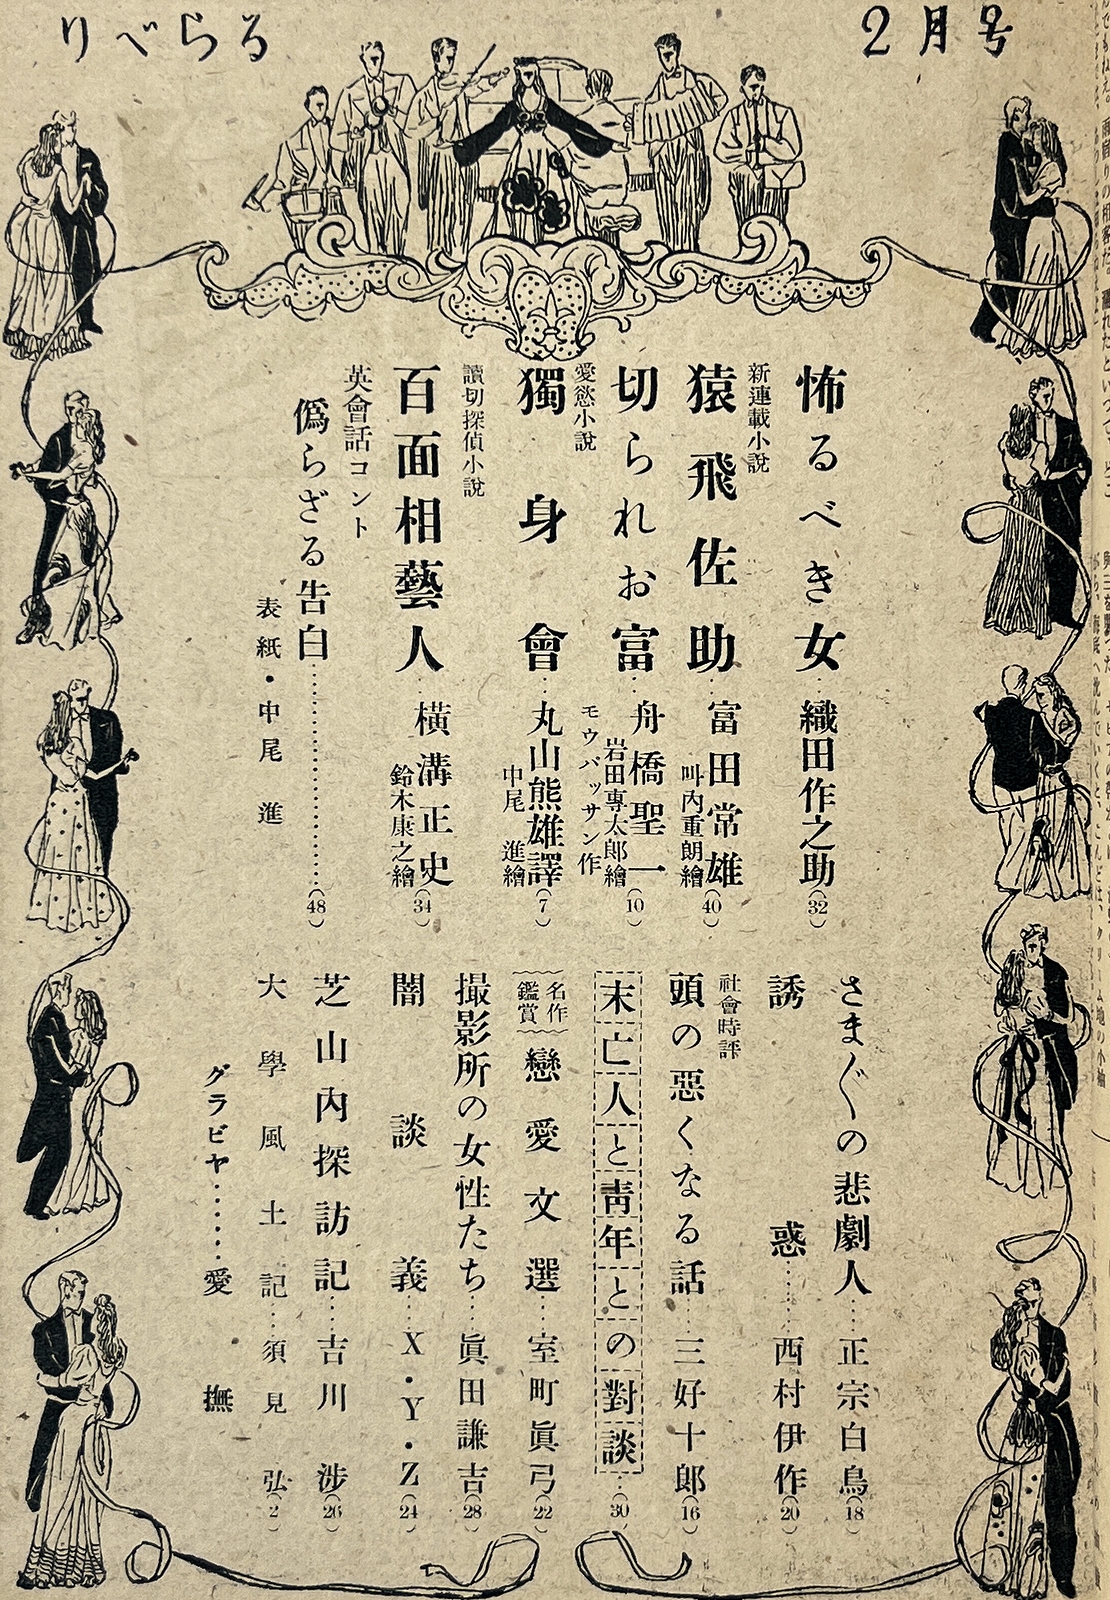 りべらる
2月号
怖るべき女…織田作之助(32)
新連載小說
猿飛佐助…富田常雄(40)
叫內重朗繪
切られお富…舟橋聖一(10)
岩田專太郎繪
愛慾小說
モウパッサン作
獨身會…丸山熊雄譯(7)
中尾進繪
讀切探偵小說
百面相藝人…橫溝正史(34)
鈴木康之繪
英會話コント
僞らざる告白…………(48)
表紙・中尾進
さま〲の悲劇人…正宗白鳥(18)
誘惑……西村伊作(20)
社會時評
頭の惡くなる話…三好十郎(16)
末亡人と靑年との對談…(30)
名作鑑賞
戀愛文選…室町眞弓(22)
撮影所の女性たち…眞田謙吉(28)
闇談義…X・Y・Z(24)
芝山內探訪記…吉川涉(26)
大學風土記…須見弘(2)
グラビヤ……愛撫